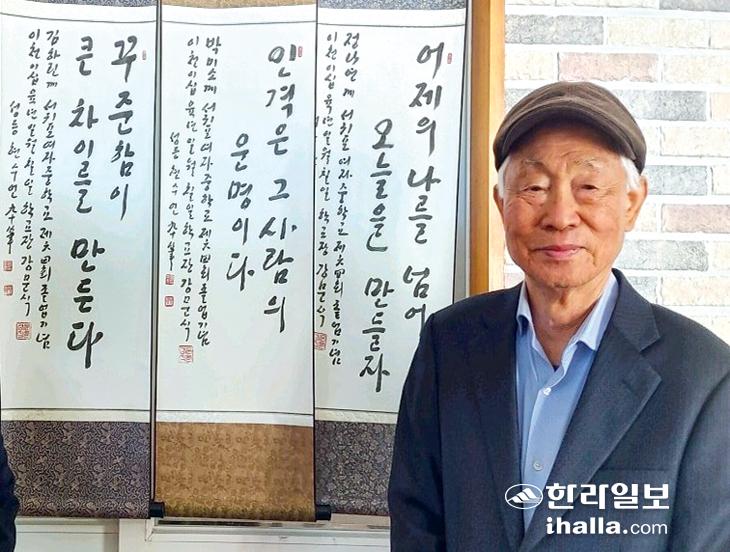 어제의 나를 넘어
오늘을 만들자
정나연께 서귀포여자중학교 제六四回 졸업기념
이천이십육년 일월 칠일 학교장 강문식
인격은 그 사람의
운명이다
박미소께 서귀포여자중학교 제六四回 졸업기념
이천이십육년 일월 칠일 학교장 강문식
성등 현수언
꾸준함이
큰 차이를 만든다
김하린께 서귀포여자중학교 제六四回 졸업기념
이천이십육년 일월 칠일 학교장 강문식
성등 현수언
한라일보
ihalla.com